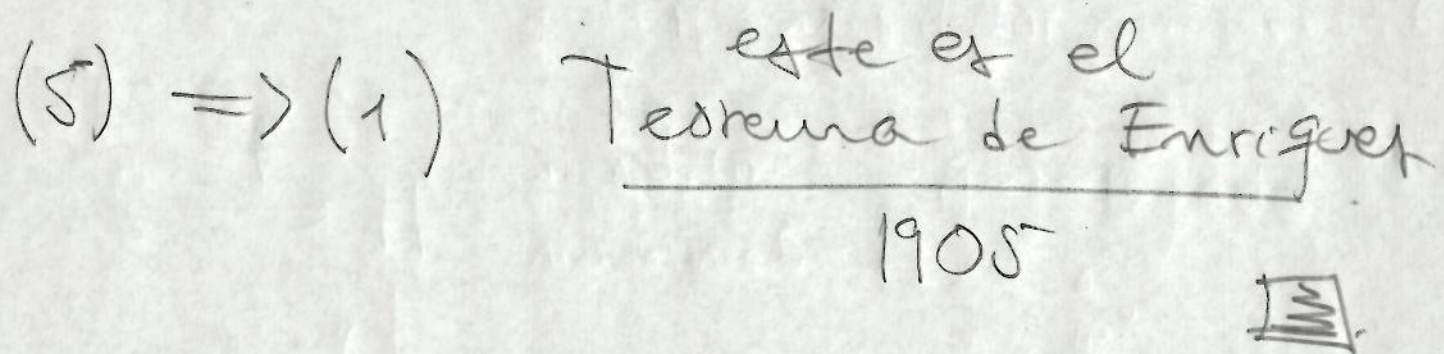 (5) => (1) este es el
Teorema de Enriques
1905